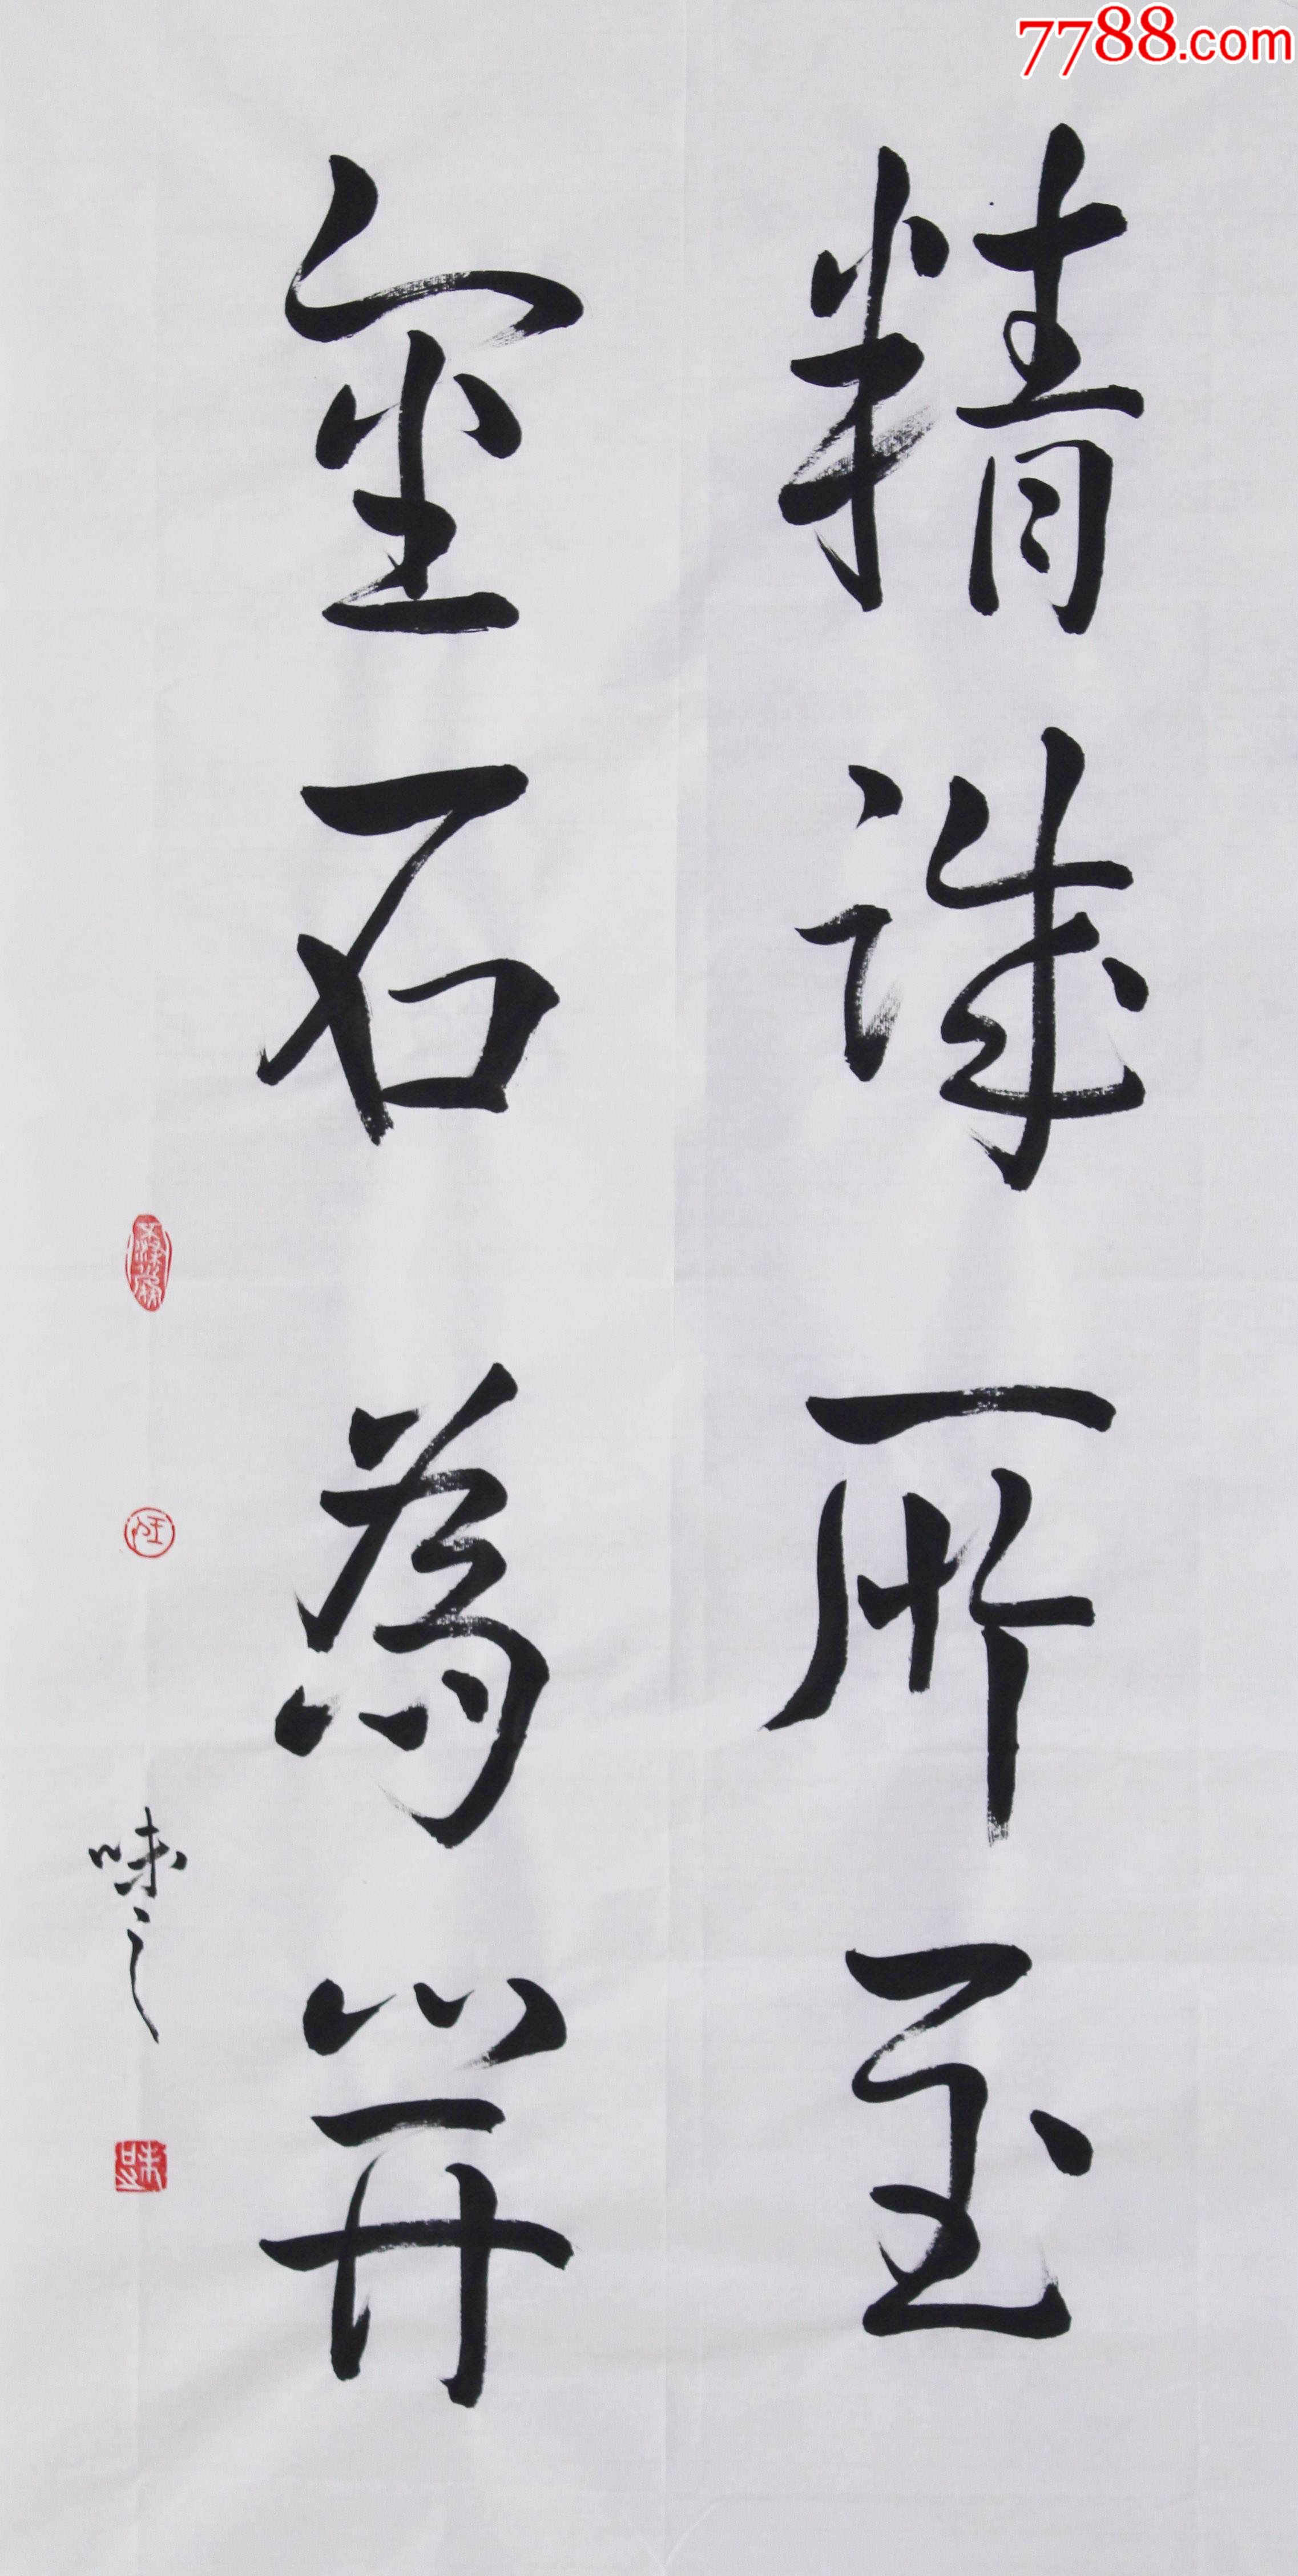 7788.com
精诚所至
金石為開
味之
味